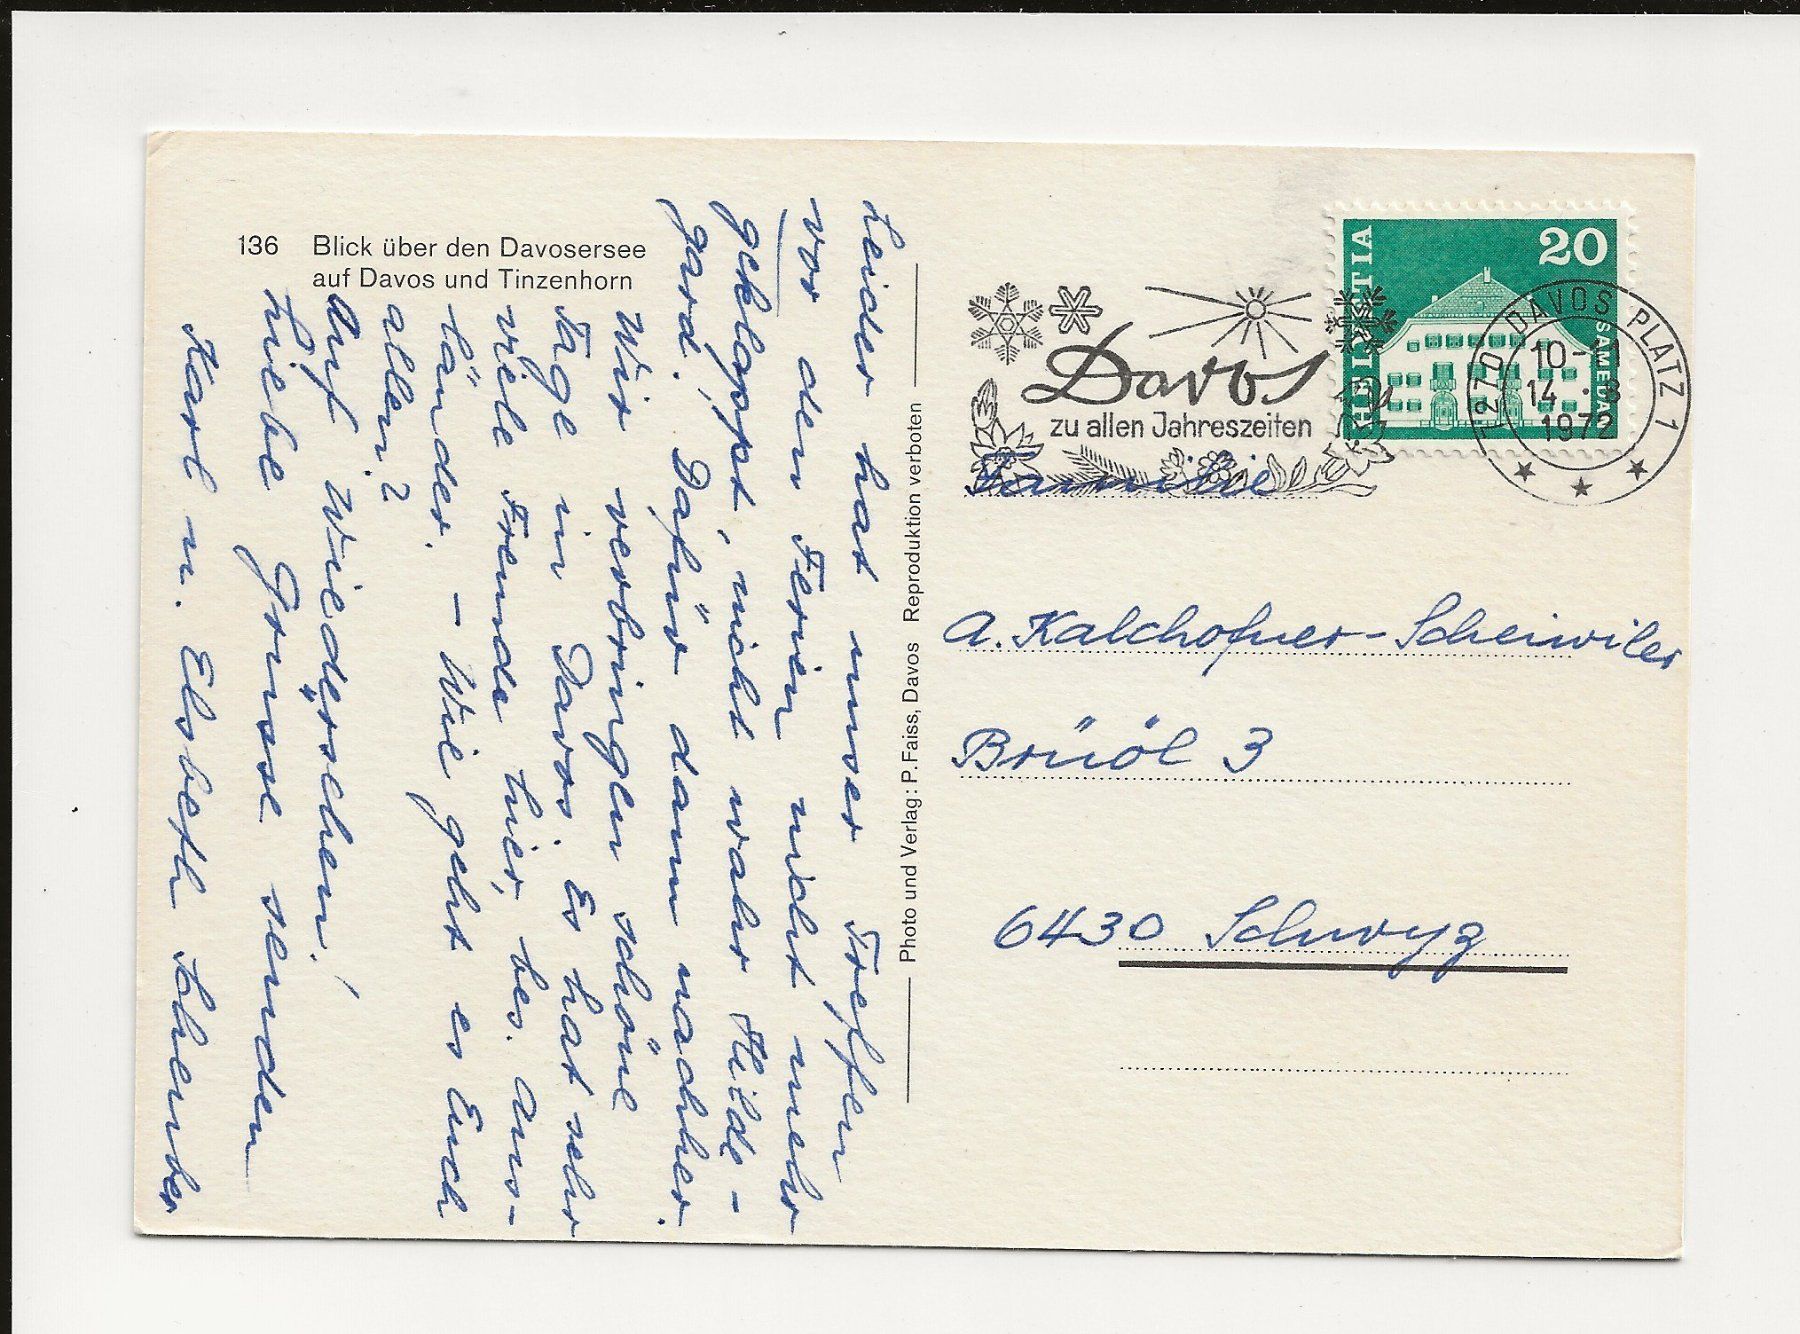 136 Blick über den Davosersee
auf Davos und Tinzenhorn
Leider hat unser Treffen
vor den Ferien nicht mehr
geklappt, nicht wahr Hilde-
gard! Dafür dann nachher.
Wir verbringen schöne
Tage in Davos. Es hat sehr
viele Fremde hier, bes. Aus-
länder. – Wie geht es Euch
allen?
Auf Wiedersehen!
Liebe Grüsse senden
Karl u. Elsbeth
Photo und Verlag: P. Faiss, Davos Reproduktion verboten
HELVETIA
20
SAMEDAN
7270 DAVOS PLATZ 1
10-11
14. 8
1972
Davos
zu allen Jahreszeiten
Familie
A. Kalchofner-Scheiwiler
Brüöl 3
6430 Schwyz